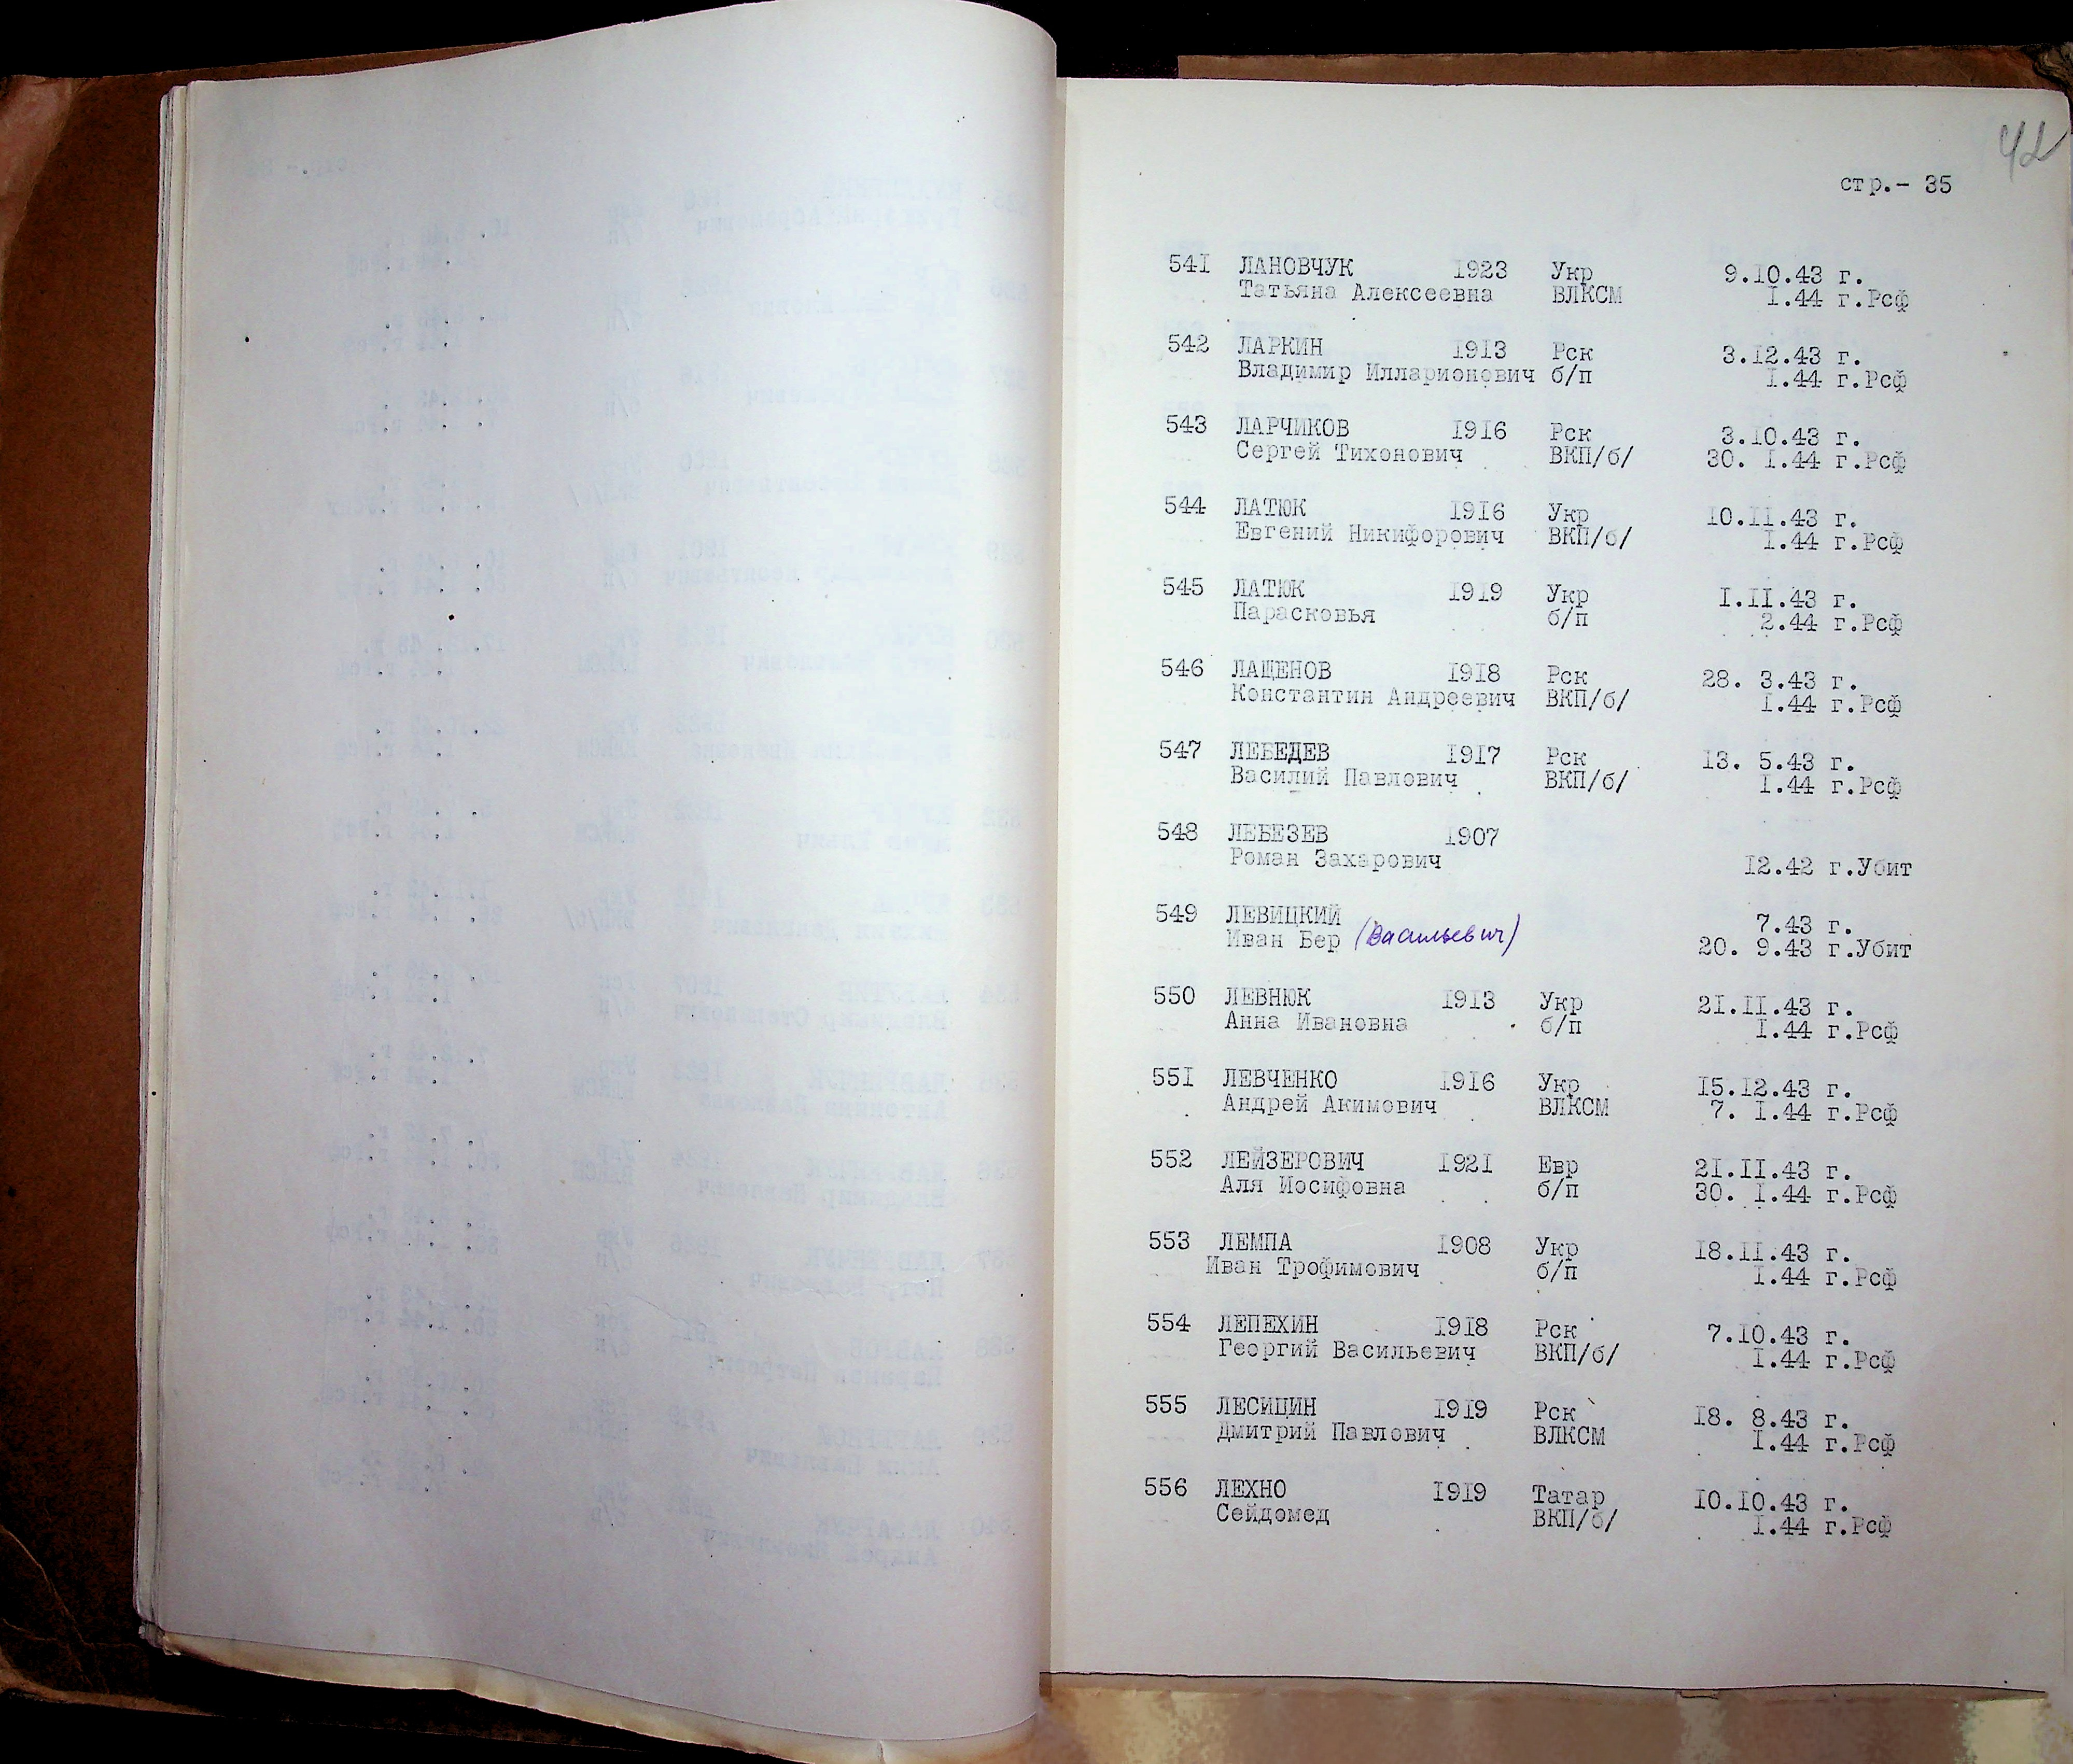 42
стр.- 35
541 ЛАНОВЧУК 1923 Укр 9.10.43 г.
Татьяна Алексеевна ВЛКСМ I.44 г.Рсф
542 ЛАРКИН 1913 Рск 3.12.43 г.
Владимир Илларионович б/п I.44 г.Рсф
543 ЛАРЧИКОВ 1916 Рск 3.10.43 г.
Сергей Тихонович ВКП/б/ 30. I.44 г.Рсф
544 ЛАТЮК 1916 Укр 10.II.43 г.
Евгений Никифорович ВКП/б/ I.44 г.Рсф
545 ЛАТЮК 1919 Укр I.II.43 г.
Парасковья б/п 2.44 г.Рсф
546 ЛАЩЕНОВ 1918 Рск 28. 3.43 г.
Константин Андреевич ВКП/б/ I.44 г.Рсф
547 ЛЕБЕДЕВ 1917 Рск 13. 5.43 г.
Василий Павлович ВКП/б/ I.44 г.Рсф
548 ЛЕБЕЗЕВ 1907
Роман Захарович 12.42 г.Убит
549 ЛЕВИЦКИЙ 7.43 г.
Иван Вер (Васильевич) 20. 9.43 г.Убит
550 ЛЕВНЮК 1913 Укр 21.II.43 г.
Анна Ивановна б/п I.44 г.Рсф
551 ЛЕВЧЕНКО 1916 Укр 15.12.43 г.
Андрей Акимович ВЛКСМ 7. I.44 г.Рсф
552 ЛЕЙЗЕРОВИЧ 1921 Евр 21.II.43 г.
Аля Иосифовна б/п 30. I.44 г.Рсф
553 ЛЕМПА 1908 Укр 18.II.43 г.
Иван Трофимович б/п I.44 г.Рсф
554 ЛЕПЕХИН 1918 Рск 7.10.43 г.
Георгий Васильевич ВКП/б/ I.44 г.Рсф
555 ЛЕСИЦИН 1919 Рск 18. 8.43 г.
Дмитрий Павлович ВЛКСМ I.44 г.Рсф
556 ЛЕХНО 1919 Татар 10.10.43 г.
Сейдомед ВКП/б/ I.44 г.Рсф